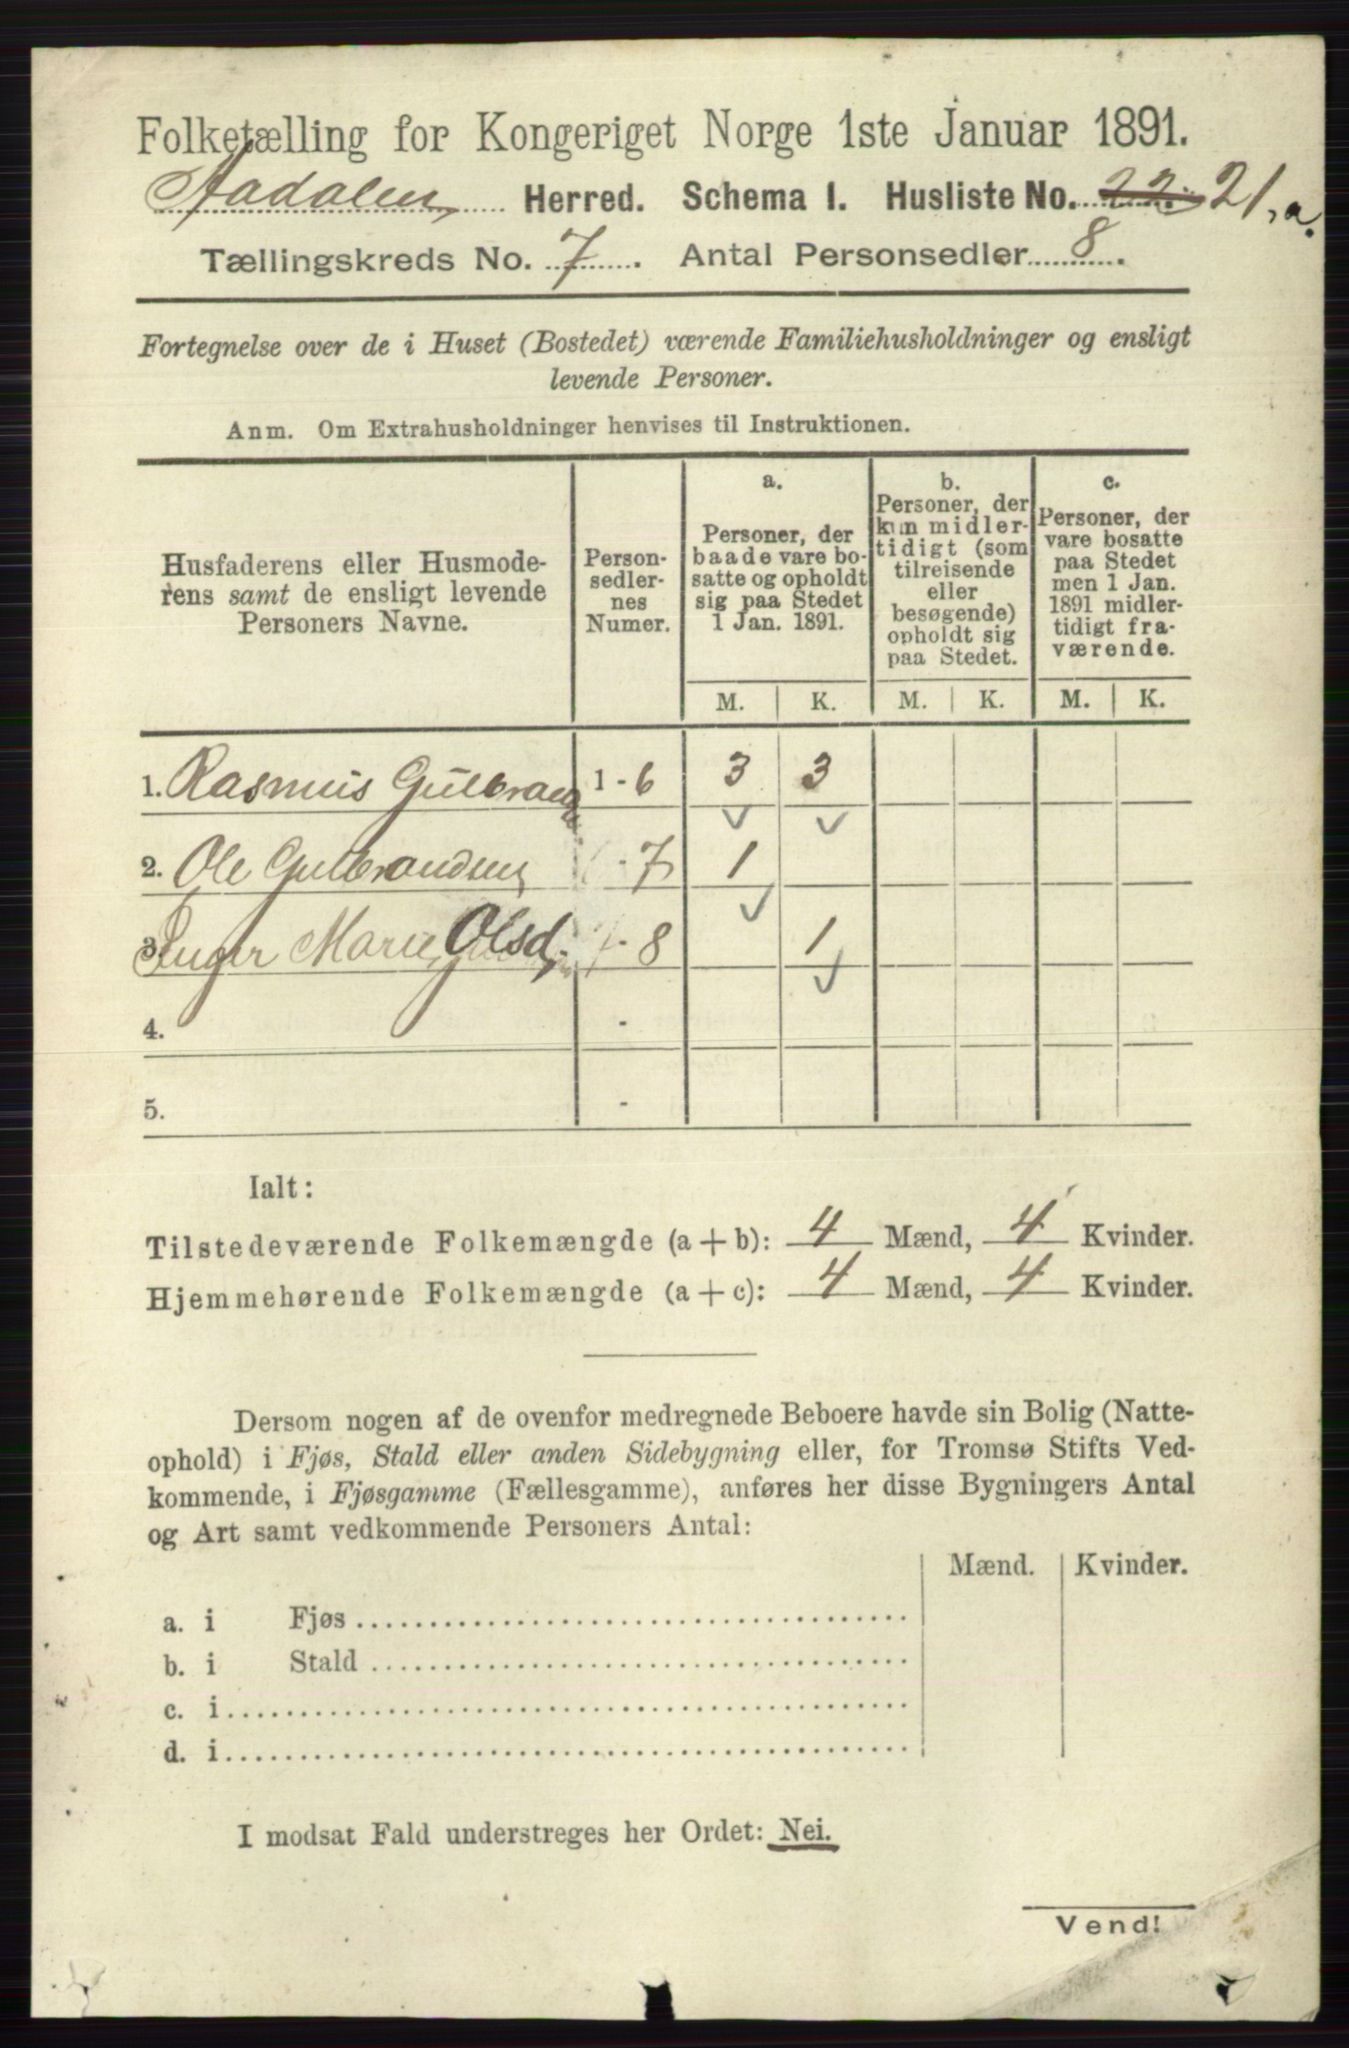 Folketælling for Kongeriget Norge 1ste Januar 1891.
Aadalen Herred. Schema I. Husliste No. 22. 21, a.
Tællingskreds No. 7. Antal Personsedler 8.
Fortegnelse over de i Huset (Bostedet) værende Familiehusholdninger og ensligt
levende Personer.
Anm. Om Extrahusholdninger henvises til Instruktionen.
Husfaderens eller Husmode-
rens samt de ensligt levende
Personers Navne.
Person-
sedler-
nes
Numer.
a.
Personer, der
baade vare bo-
satte og opholdt
sig paa Stedet
1 Jan. 1891.
b.
Personer, der
kun midler-
tidigt (som
tilreisende
eller
besøgende)
opholdt sig
paa Stedet.
c.
Personer, der
vare bosatte
paa Stedet
men 1 Jan.
1891 midler-
tidigt fra-
værende.
M. K. M. K. M. K.
1. Rasmus 1 - 6 3 3
2. Ole Gulbrandsen - 7 1
3. Inger Marie Olsd. - 8 1
4. -
5. -
Ialt:
Tilstedeværende Folkemængde (a + b): 4 Mænd, 4 Kvinder.
Hjemmehørende Folkemængde (a + c): 4 Mænd, 4 Kvinder.
Dersom nogen af de ovenfor medregnede Beboere havde sin Bolig (Natte-
ophold) i Fjøs, Stald eller anden Sidebygning eller, for Tromsø Stifts Ved-
kommende, i Fjøsgamme (Fællesgamme), anføres her disse Bygningers Antal
og Art samt vedkommende Personers Antal:
Mænd. Kvinder.
a. i Fjøs
b. i Stald
c. i
d. i
I modsat Fald understreges her Ordet: Nei.
Vend!